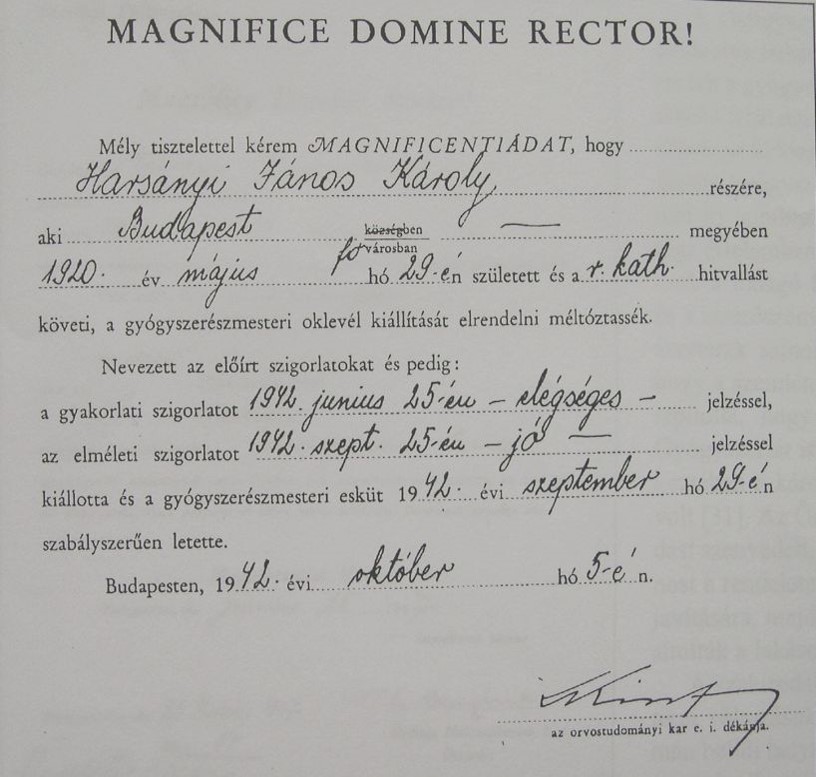 MAGNIFICE DOMINE RECTOR!
Mély tisztelettel kérem MAGNIFICENTIÁDAT, hogy
Harsányi János Károly részére,
aki Budapest községben — megyében
fővárosban
1920. év május hó 29-én született és a r. kath. hitvallást
követi, a gyógyszerészmesteri oklevél kiállítását elrendelni méltóztassék.
Nevezett az előírt szigorlatokat és pedig:
a gyakorlati szigorlatot 1942. junius 25-én – elégséges – jelzéssel,
az elméleti szigorlatot 1942. szept. 25-én – jó — jelzéssel
kiállotta és a gyógyszerészmesteri esküt 1942. évi szeptember hó 29-én
szabályszerűen letette.
Budapesten, 1942. évi október hó 5-én.
az orvostudományi kar e. i. dékánja.